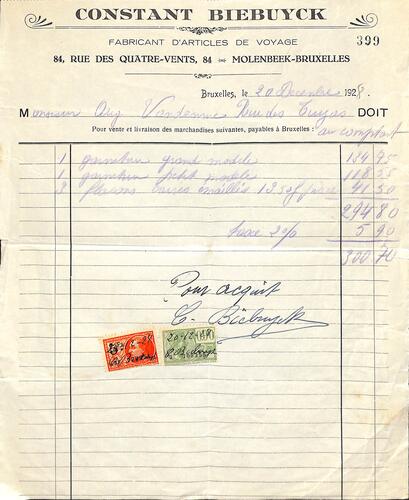 CONSTANT BIEBUYCK
FABRICANT D'ARTICLES DE VOYAGE
399
84, RUE DES QUATRE-VENTS, 84 MOLENBEEK-BRUXELLES
Bruxelles, le 20 Decembre 1928.
Monsieur Aug Vandenne Rue des DOIT
Pour vente et livraison des marchandises suivantes, payables à Bruxelles : au comptant
1 garniture grand modele 134 95
1 garniture petit modele 118 35
3 flacons émaillés 13.50 41 50
294 80
taxe 2% 5 90
300 70
Pour acquit
C. Biebuyck
20-12-28